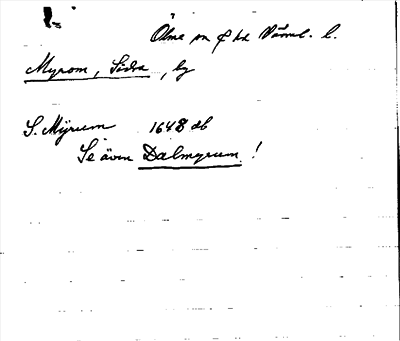 Ölme sn & hd Värml. l.
Myrom, Södra, by
S. Myrum 1648 db
Se även Dalmyrum!